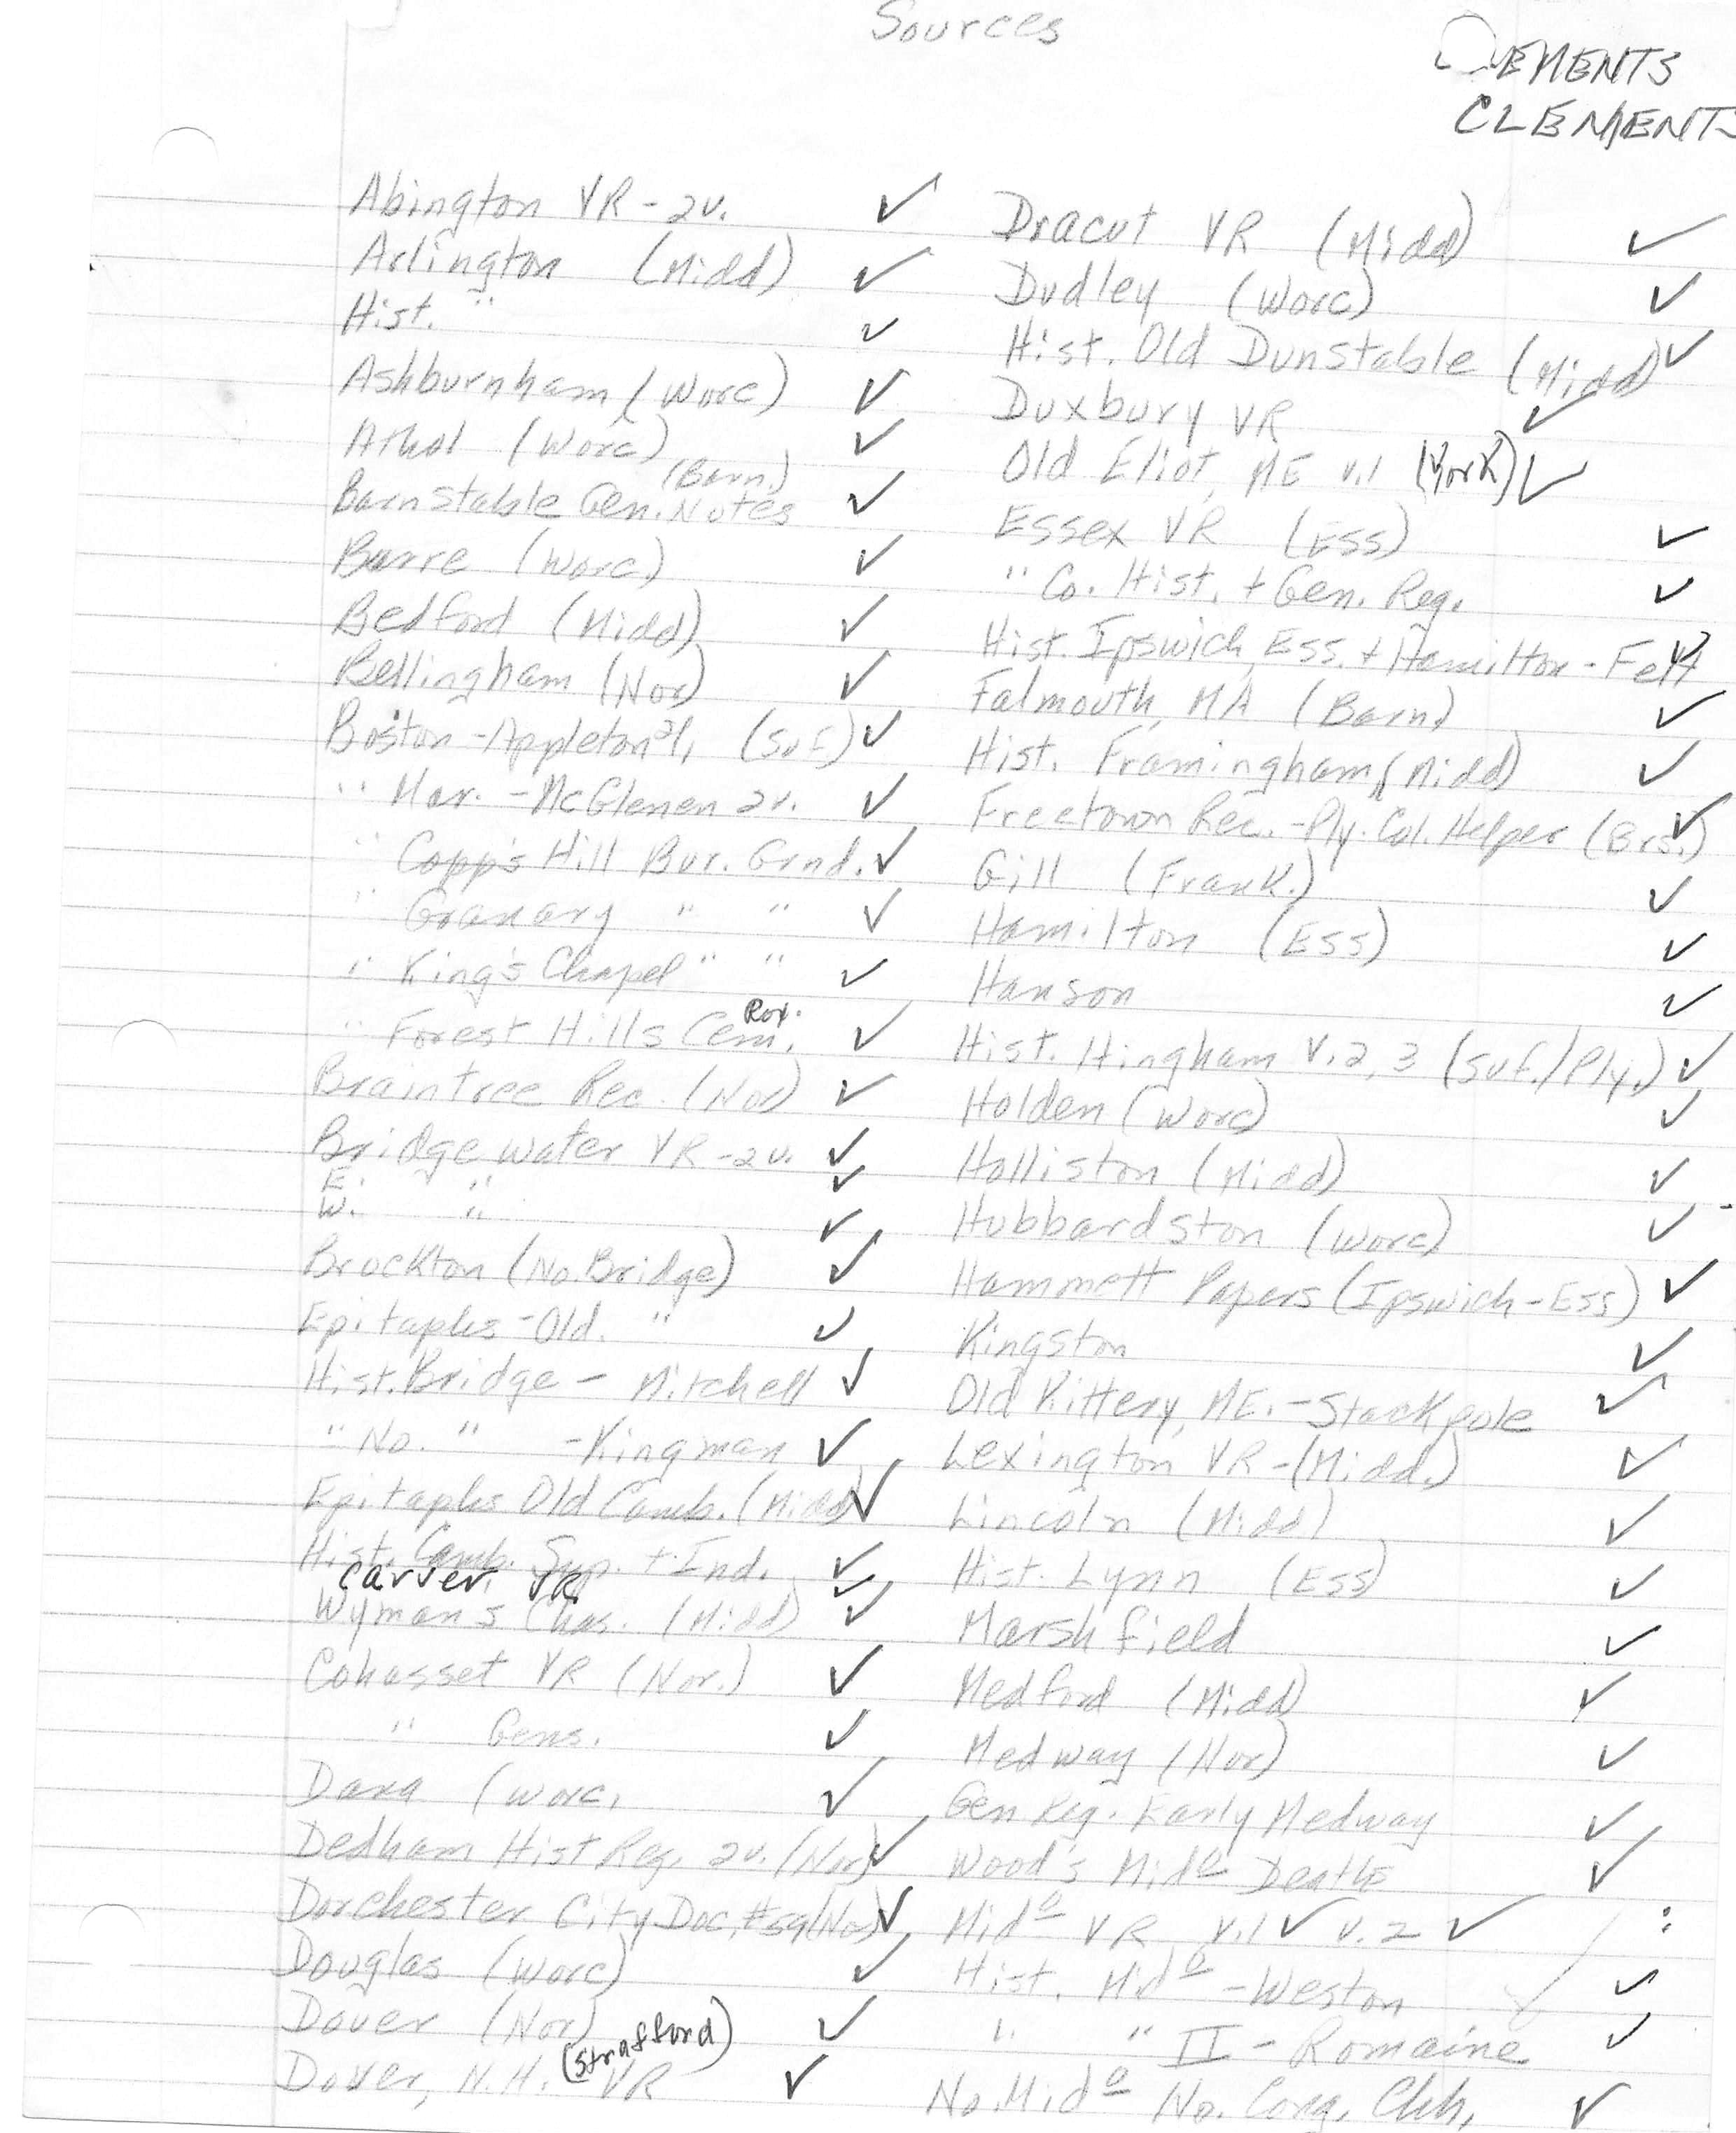 Sources
CLEMENTS
Abington VR - 2v. ✓
Arlington (Midd) ✓
Hist. " ✓
Ashburnham (Worc) ✓
Athol (Worc) ✓
(Barn.)
Barnstable Gen. Notes ✓
Barre (Worc) ✓
Bedford (Midd) ✓
Bellingham (Nor) ✓
Boston - Appleton (Suf) ✓
" Mar. - McGlenen 2v. ✓
" Copp's Hill Bur. Grnd. ✓
" Granary " " ✓
" King's Chapel " " ✓
Rox.
" Forest Hills Cem. ✓
Braintree Rec. (Nor) ✓
Bridgewater VR - 2v. ✓
E. " ✓
W. " ✓
Brockton (No. Bridge) ✓
Epitaphs - Old. " ✓
Hist. Bridge - Mitchell ✓
" No. " - Kingman ✓
Epitaphs Old Camb. (Midd) ✓
Hist. Camb. Sup. + Ind. ✓
Carver VR ✓
Wyman's Chas. (Midd) ✓
Cohasset VR (Nor.) ✓
" Gens. ✓
Dana (Worc. ✓
Dedham Hist Reg. 2v. (Nor) ✓
Dorchester City Doc. (Nor) ✓
Douglas (Worc) ✓
Dover (Nor) ✓
(Strafford)
Dover, N.H. VR ✓
Dracut VR (Midd) ✓
Dudley (Worc) ✓
Hist. Old Dunstable (Midd) ✓
Duxbury VR ✓
Old Eliot, ME v.1 (York) ✓
Essex VR (Ess) ✓
" Co. Hist. + Gen. Reg. ✓
Hist. Ipswich, Ess. + Hamilton - Felt ✓
Falmouth, MA (Barn) ✓
Hist. Framingham (Midd) ✓
Freetown Rec. - Ply. Col. Helper (Brs.) ✓
Gill (Frank.) ✓
Hamilton (Ess) ✓
Hanson ✓
Hist. Hingham V. 2, 3 (Suf./Ply.) ✓
Holden (Worc) ✓
Holliston (Midd) ✓
Hubbardston (Worc) ✓
Hammett Papers (Ipswich - Ess) ✓
Kingston ✓
Old Kittery, ME. - Stackpole ✓
Lexington VR - (Midd.) ✓
Lincoln (Midd) ✓
Hist. Lynn (Ess) ✓
Marshfield ✓
Medford (Midd) ✓
Medway (Nor) ✓
Gen Reg. Early Medway ✓
Wood's Mid<u>o</u> Deaths ✓
Mid<u>o</u> VR v.1 ✓ v.2 ✓
Hist. Mid<u>o</u> - Weston ✓
" " II - Romaine ✓
No. Mid<u>o</u> No. Cong. Chh. ✓